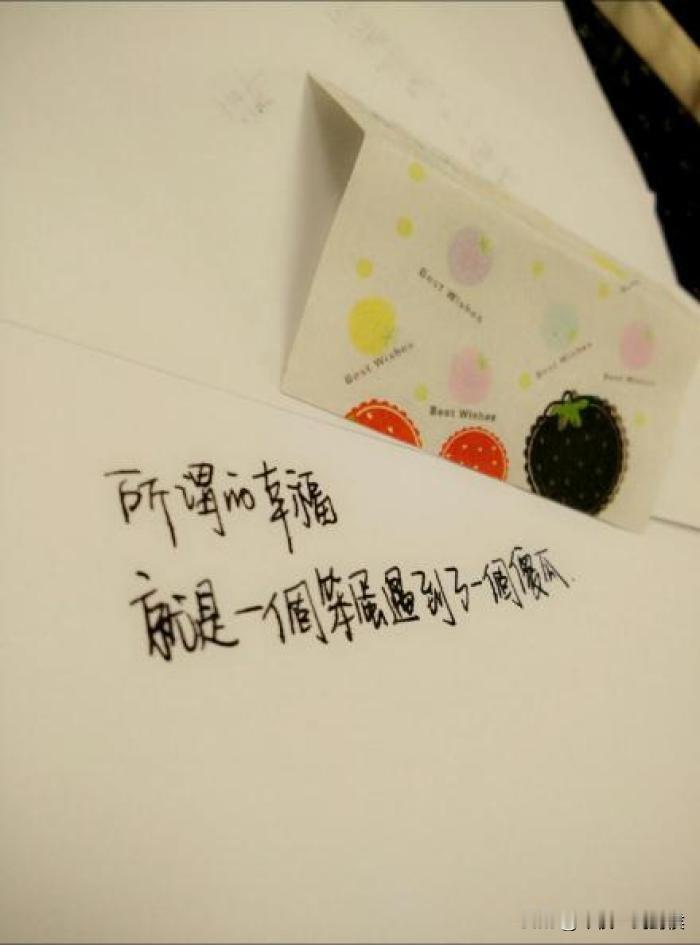 Best Wishes
Best Wishes
Best Wishes
Best Wishes
Best Wishes
所謂的幸福
就是一個笨蛋遇到了一個傻瓜.